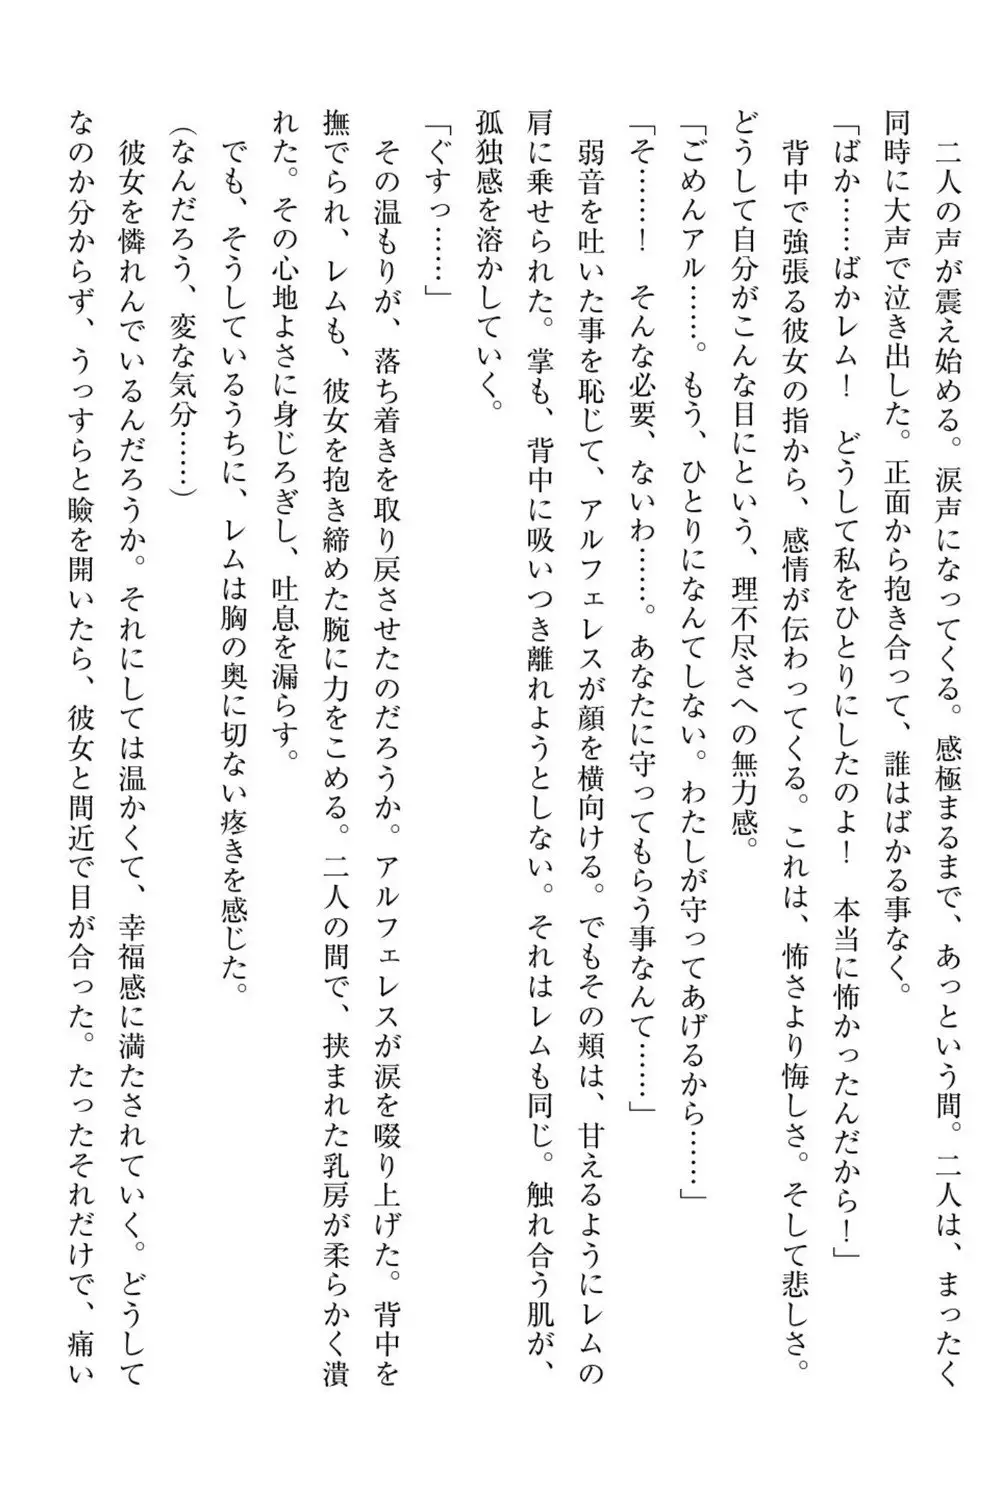 二人の声が震え始める。涙声になってくる。感極まるまで、あっという間。二人は、まったく
同時に大声で泣き出した。正面から抱き合って、誰はばかる事なく。
「ばか……ばかレム！　どうして私をひとりにしたのよ！　本当に怖かったんだから！」
　背中で強張る彼女の指から、感情が伝わってくる。これは、怖さより悔しさ。そして悲しさ。
どうして自分がこんな目にという、理不尽さへの無力感。
「ごめんアル……。もう、ひとりになんてしない。わたしが守ってあげるから……」
「そ……！　そんな必要、ないわ……。あなたに守ってもらう事なんて……」
　弱音を吐いた事を恥じて、アルフェレスが顔を横向ける。でもその頬は、甘えるようにレムの
肩に乗せられた。掌も、背中に吸いつき離れようとしない。それはレムも同じ。触れ合う肌が、
孤独感を溶かしていく。
「ぐすっ……」
　その温もりが、落ち着きを取り戻させたのだろうか。アルフェレスが涙を啜り上げた。背中を
撫でられ、レムも、彼女を抱き締めた腕に力をこめる。二人の間で、挟まれた乳房が柔らかく潰
れた。その心地よさに身じろぎし、吐息を漏らす。
　でも、そうしているうちに、レムは胸の奥に切ない疼きを感じた。
（なんだろう、変な気分……）
　彼女を憐れんでいるんだろうか。それにしては温かくて、幸福感に満たされていく。どうして
なのか分からず、うっすらと瞼を開いたら、彼女と間近で目が合った。たったそれだけで、痛い